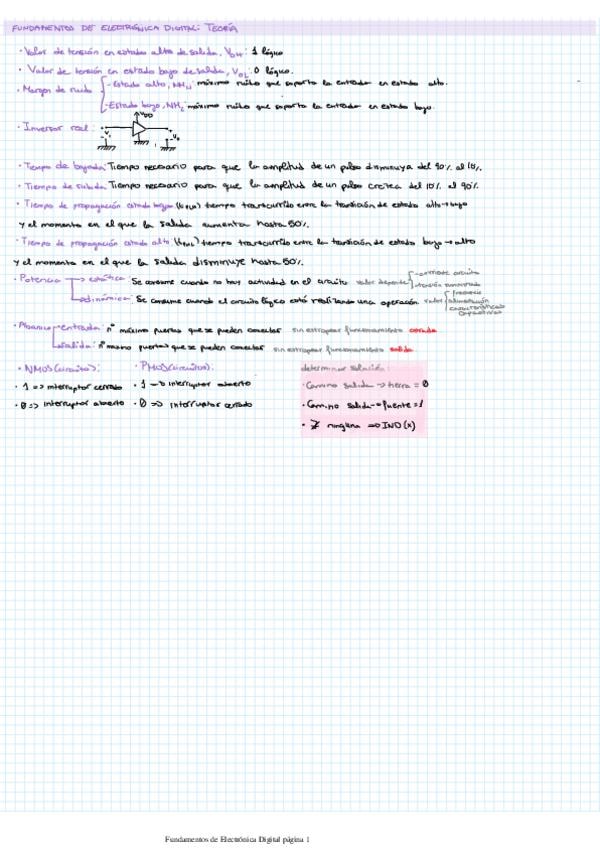 FUNDAMENTOS DE ELECTRÓNICA DIGITAL: TEORÍA
· Valor de tensión en estado alto de salida, VOH: 1 lógico
· Valor de tensión en estado bajo de salida, VOL: 0 lógico.
· Margen de ruido - Estado alto, NMH: máximo ruido que soporta la entrada en estado alto.
- Estado bajo, NML: máximo ruido que soporta la entrada en estado bajo.
· Inversor real: VDD
· Tiempo de bajada: Tiempo necesario para que la amplitud de un pulso disminuya del 90% al 10%.
· Tiempo de subida: Tiempo necesario para que la amplitud de un pulso crezca del 10% al 90%.
· Tiempo de propagación estado bajo tiempo transcurrido entre la transición de estado alto→bajo
y el momento en el que la salida aumenta hasta 50%.
· Tiempo de propagación estado alto tiempo transcurrido entre la transición de estado bajo→alto
y el momento en el que la salida disminuye hasta 50%.
· Potencia → estática: Se consume cuando no hay actividad en el circuito valor depende - corriente circuito
- tensión suministrada
→ dinámica: Se consume cuando el circuito lógico está realizando una operación valor frecuencia
alimentación
características
capacitivas
entrada: nº máximo puertas que se pueden conectar sin estropear funcionamiento
salida: nº máximo puertas que se pueden conectar sin estropear funcionamiento salida
· NMOS (circuito): · PMOS (circuito): determinar solución:
· 1 => interruptor cerrado · 1 => interruptor abierto · Camino salida → tierra = 0
· 0 => interruptor abierto · 0 => interruptor cerrado · Camino salida → fuente = 1
· Z ninguna => IND (x)
Fundamentos de Electrónica Digital página 1